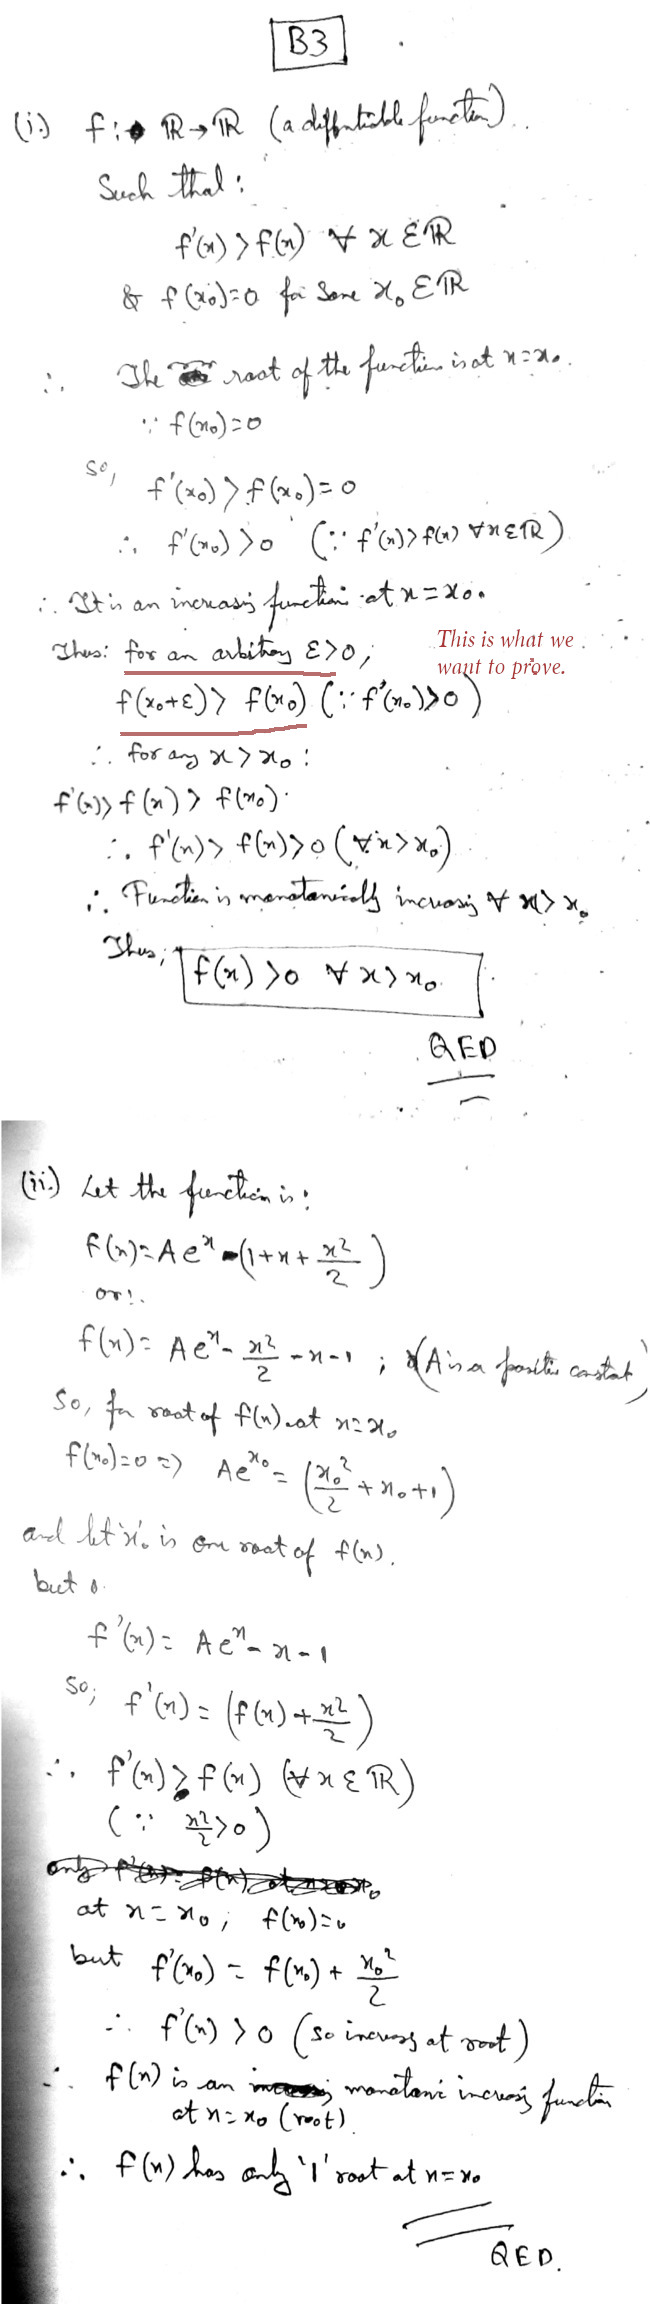 B3
(i.) f: ℝ→ℝ (a diffntiable function).
Such that:
f'(x) > f(x) ∀ x ε ℝ
& f(x₀)=0 for some x₀ ε ℝ
∴ The root of the function is at x=x₀.
∵ f(x₀)=0
so, f'(x₀) > f(x₀) = 0
∴ f'(x₀) > 0 (∵ f'(x) > f(x) ∀ x ε ℝ)
∴ It is an increasing function at x=x₀.
Thus: for an arbitrary ε>0,
This is what we
want to prove.
f(x₀+ε) > f(x₀) (∵ f'(x₀)>0)
∴ for any x > x₀ :
f'(x) > f(x) > f(x₀)
∴ f'(x) > f(x) > 0 (∀ x > x₀)
∴ Function is monotonically increasing ∀ x > x₀
Thus; f(x) > 0 ∀ x > x₀
QED
(ii.) Let the function is:
f(x) = Aeˣ - (1+x+x²/2)
or:
f(x) = Aeˣ - x²/2 - x - 1 ; (A is a positive constant)
So, for root of f(x) at x=x₀
f(x₀)=0 => Aeˣ⁰ = (x₀²/2 + x₀ + 1)
and let x₀ is one root of f(x).
but
f'(x) = Aeˣ - x - 1
So; f'(x) = (f(x) + x²/2)
∴ f'(x) > f(x) (∀ x ε ℝ)
(∵ x²/2 > 0)
at x = x₀ ; f(x₀)=0
but f'(x₀) = f(x₀) + x₀²/2
∴ f'(x) > 0 (so increasing at root)
∴ f(x) is an monotonic increasing function
at x=x₀ (root)
∴ f(x) has only '1' root at x=x₀
QED.